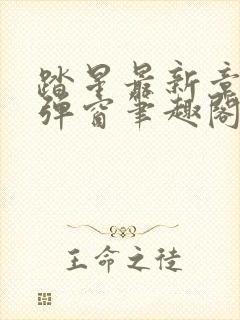 踏星最新章
弹窗笔趣阁
王命之徒